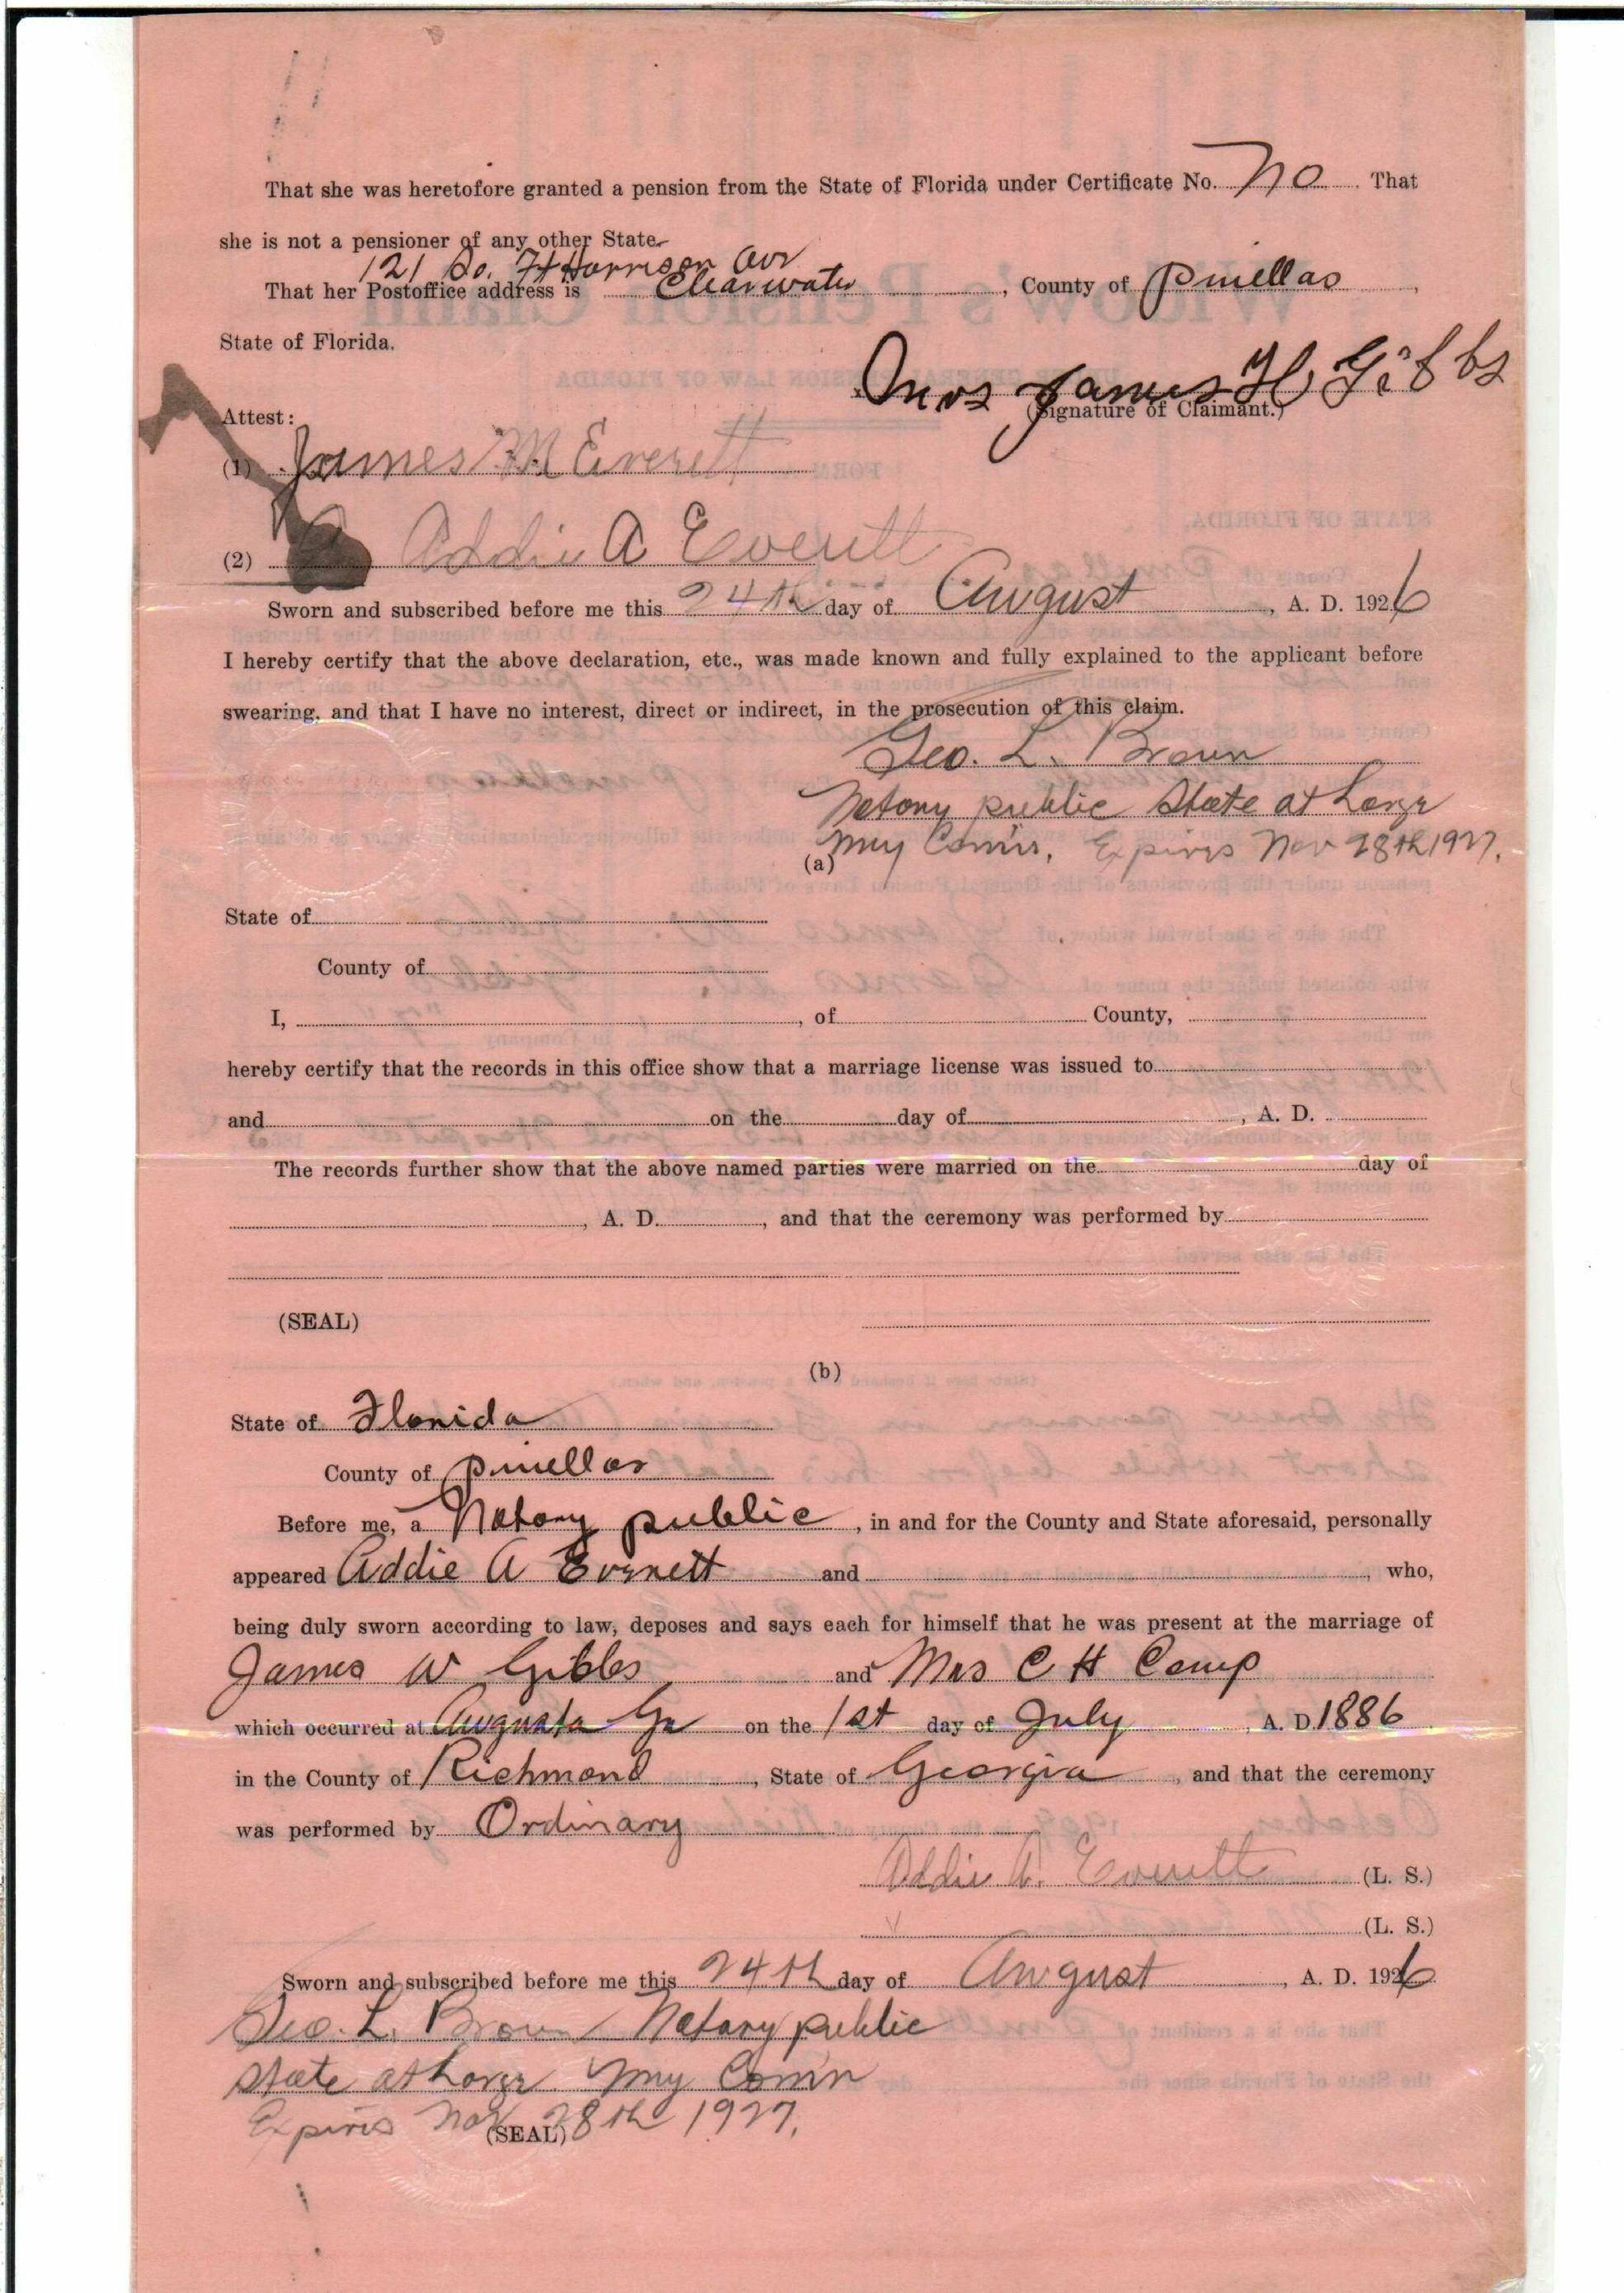 That she was heretofore granted a pension from the State of Florida under Certificate No. No. That
she is not a pensioner of any other State.
121 So. Ft Harrison Ave
That her Postoffice address is Clearwater, County of Pinellas,
State of Florida.
Mrs James W Gibbs
(Signature of Claimant.)
Attest:
(1) James M Everett
(2) Addie A Everett
Sworn and subscribed before me this 24th day of August, A. D. 1926
I hereby certify that the above declaration, etc., was made known and fully explained to the applicant before
swearing, and that I have no interest, direct or indirect, in the prosecution of this claim.
Geo. L. Brown
Notary public State at Large
My Comn. Expires Nov 28th 1927.
(a)
State of
County of
I, , of County,
hereby certify that the records in this office show that a marriage license was issued to
and on the day of , A. D.
The records further show that the above named parties were married on the day of
, A. D. , and that the ceremony was performed by
(SEAL)
(b)
State of Florida
County of Pinellas
Before me, a Notary public, in and for the County and State aforesaid, personally
appeared Addie A Everett and , who,
being duly sworn according to law, deposes and says each for himself that he was present at the marriage of
James W Gibbs and Mrs C H Camp
which occurred at Augusta Ga on the 1st day of July, A. D. 1886
in the County of Richmond, State of Georgia, and that the ceremony
was performed by Ordinary
Addie A. Everett (L. S.)
(L. S.)
Sworn and subscribed before me this 24th day of August, A. D. 1926
Geo. L. Brown Notary public
State at Large My Comn
Expires Nov 28th 1927.
(SEAL)